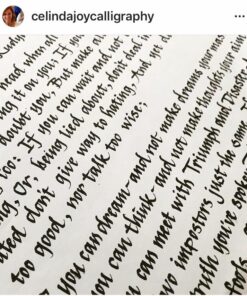 celindajoycalligraphy
when all
ing it on you; If you
doubt you, But make
for: If you can wait and not
ng, Or, being lied about, don't deal
ated don't give way to hating-And yet
too good, nor talk too wise;
you can dream-and not make dreams your
you can think-and not make thoughts
can meet with Triumph and
wo impostors just the
you've